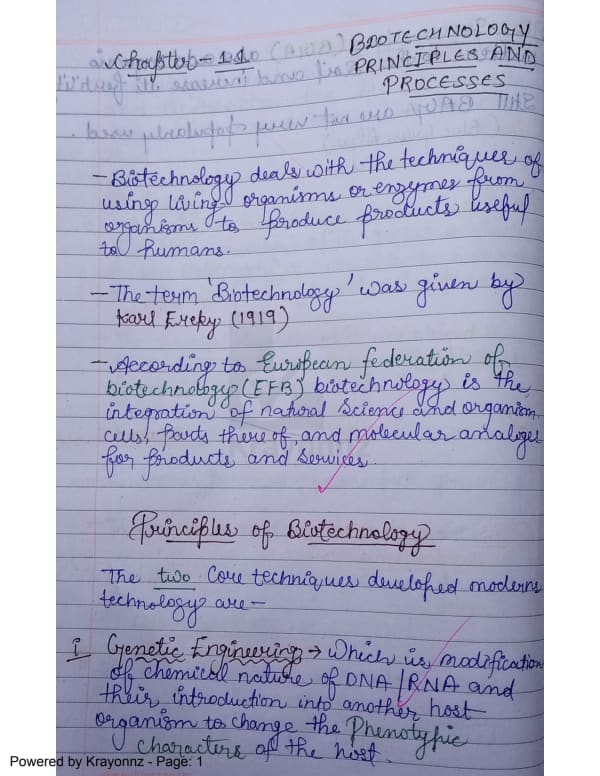 Chapter - 11
BIOTECHNOLOGY
PRINCIPLES AND
PROCESSES
- Biotechnology deals with the techniques of
using living organisms or enzymes from
organisms to produce products useful
to humans.
- The term 'Biotechnology' was given by
Karl Ereky (1919)
- According to European federation of
biotechnology (EFB) biotechnology is the
integration of natural Science and organism,
cells, parts there of, and molecular analoges
for products and services.
Principles of Biotechnology
The two core techniques developed moderns
technology are -
i Genetic Engineering → which is modification
of chemical nature of DNA/RNA and
their introduction into another host
organism to change the Phenotypic
characters of the host.
Powered by Krayonnz - Page: 1